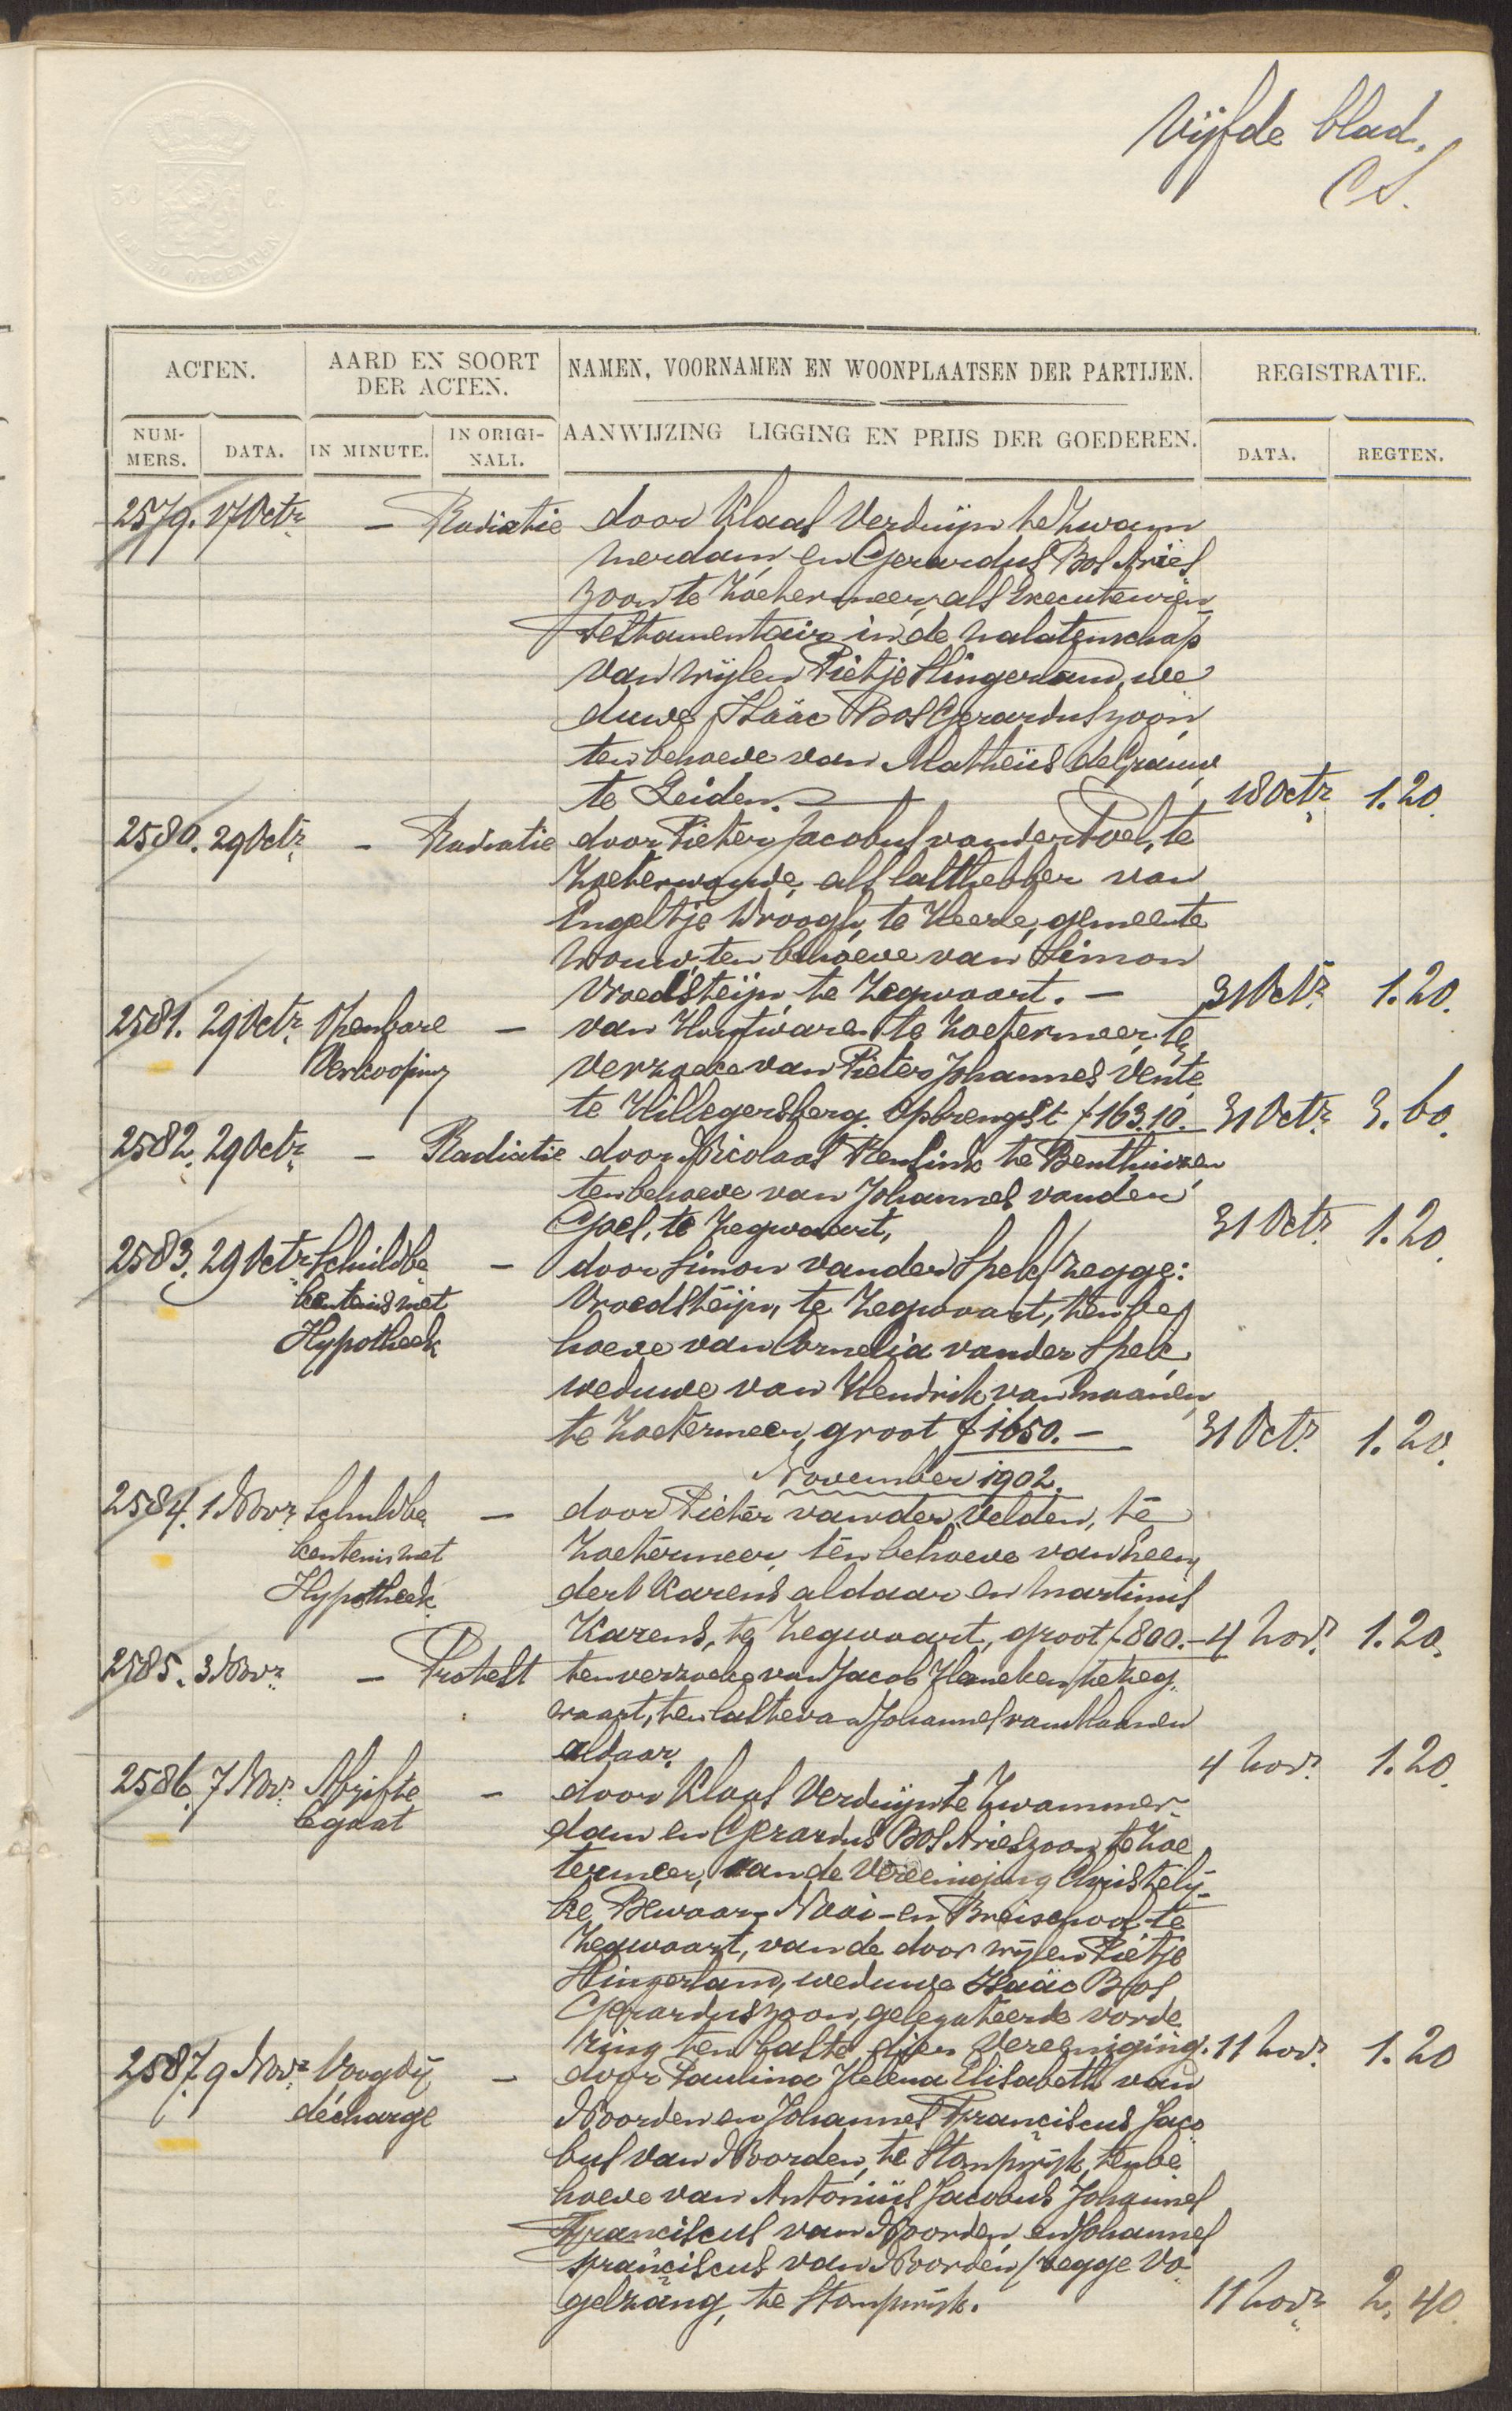 Vijfde blad.
CS.
ACTEN.
AARD EN SOORT
DER ACTEN.
NAMEN, VOORNAMEN EN WOONPLAATSEN DER PARTIJEN.
REGISTRATIE.
NUM-
MERS.
DATA.
IN MINUTE.
IN ORIGI-
NALI.
AANWIJZING LIGGING EN PRIJS DER GOEDEREN.
DATA.
REGTEN.
2579. 17 Octr. — Radiatie door Klaas Verduijn te Zwam
merdam en Gerardus Bos Aries
zoon te Zoetermeer, als Executeuren
testamentair in de nalatenschap
van wijlen Pietje Slingerland, we
duwe Isaäc Bos Gerarduszoon
ten behoeve van Matheüs de Graauw
te Leiden. — 18 Octr. 1.20.
2580. 29 Octr. — Radiatie door Pieter Jacobus van der Poel, te
Zoeterwoude, als lasthebber van
Engeltje Vroogh, te Heerle, gemeente
Wouw, ten behoeve van Simon
Vroedsteijn te Zegwaart. — 31 Octr. 1.20.
2581. 29 Octr. Openbare — van Houtwaren te Zoetermeer, te
Verkooping verzoeke van Pieter Johannes Vente
te Hillegersberg. Opbrengst f 163.10. 31 Octr. 3.60.
2582. 29 Octr. — Radiatie door Nicolaas Rensink te Benthuizen
ten behoeve van Johannes van den
Goel, te Zegwaart, 31 Octr. 1.20.
2583. 29 Octr. Schuldbe — door Simon van der Spek/zegge:
kentenis met Vroedsteijn, te Zegwaart, ten be
Hypotheek hoeve van Cornelia van der Spek,
weduwe van Hendrik van Maanen
te Zoetermeer, groot f 1650. — 31 Octr. 1.20.
November 1902.
2584. 1 Novr. Schuldbe — door Pieter van der Velden, te
kentenis met Zoetermeer, ten behoeve van Leen
Hypotheek dert Karens aldaar en Martinus
Karens, te Zegwaart, groot f 800. — 4 Novr. 1.20.
2585. 3 Novr. — Protest ten verzoeke van Jacob Heineken, te Zeg
waart, ten laste van Johannes van Maanen
aldaar. 4 Novr. 1.20.
2586. 7 Novr. Afgifte — door Klaas Verduijn te Zwammer-
legaat dam en Gerardus Bos Arieszoon te Zoe
termeer, aan de Vereeniging Christelij-
ke Bewaar- Naai- en Breischool te
Zegwaart, van de door wijlen Pietje
Slingerland, weduwe Isaäc Bos
Gerarduszoon, gelegateerde vorde
ring ten laste dier Vereeniging. 11 Novr. 1.20
2587. 9 Novr. Voogdij — door Paulina Helena Elisabeth van
décharge Noorden en Johannes Franciscus Jaco
bus van Noorden, te Stompwijk, ten be
hoeve van Antonius Jacobus Johannes
Franciscus van Noorden, en Johannes
Franciscus van Noorden/zegge Vo
gelzang, te Stompwijk. 11 Novr. 2.40.